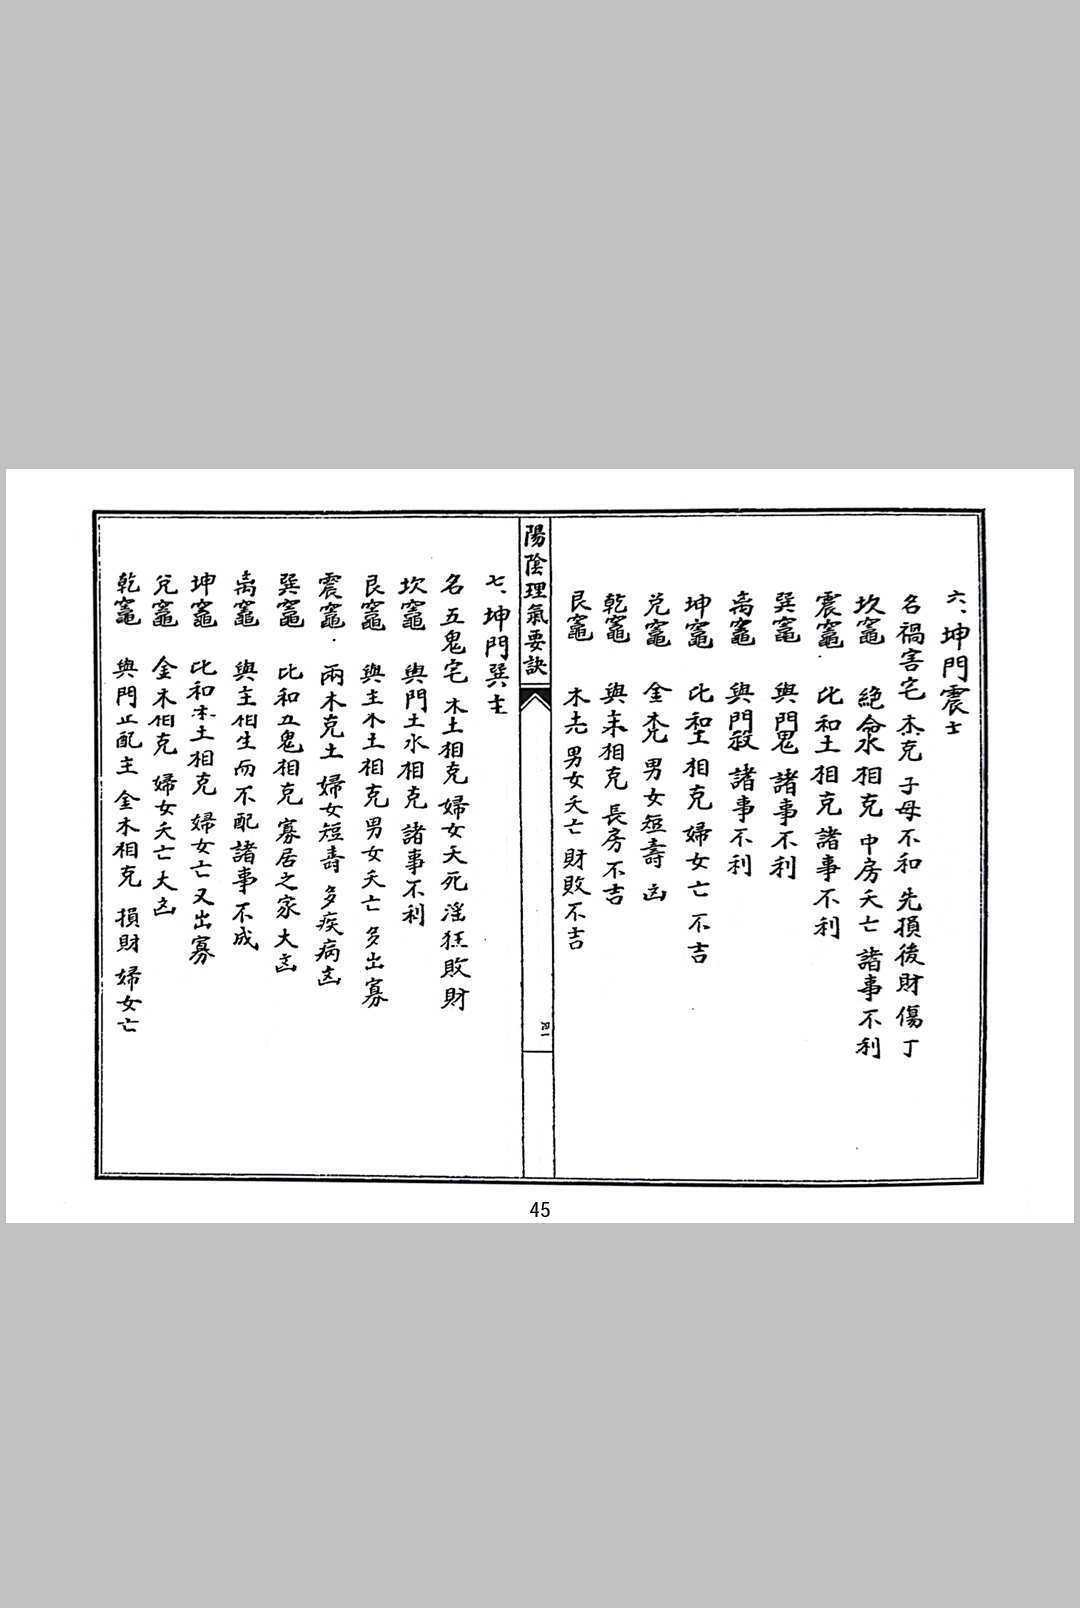 六、坤門震主
名禍害宅 木克 子母不和 先損後財傷丁
坎竈 絕命水相克 中房夭亡 諸事不利
震竈 比和土相克 諸事不利
巽竈 與門鬼 諸事不利
离竈 與門殺 諸事不利
坤竈 比和 相克 婦女亡 不吉
兑竈 金木克 男女短壽 凶
乾竈 與 相克 長房不吉
艮竈 木 克 男女夭亡 財敗不吉
陽陰理氣要訣
七、坤門巽主
名五鬼宅 木土相克 婦女夭死 淫狂敗財
坎竈 與門土水相克 諸事不利
艮竈 與主木土相克 男女夭亡 多出寡
震竈 兩木克土 婦女短壽 多疾病凶
巽竈 比和五鬼相克 寡居之家 大凶
离竈 與主相生而不配諸事不成
坤竈 比和木土相克 婦女亡 又出寡
兑竈 金木相克 婦女夭亡大凶
乾竈 與門正配主 金木相克 損財 婦女亡
45